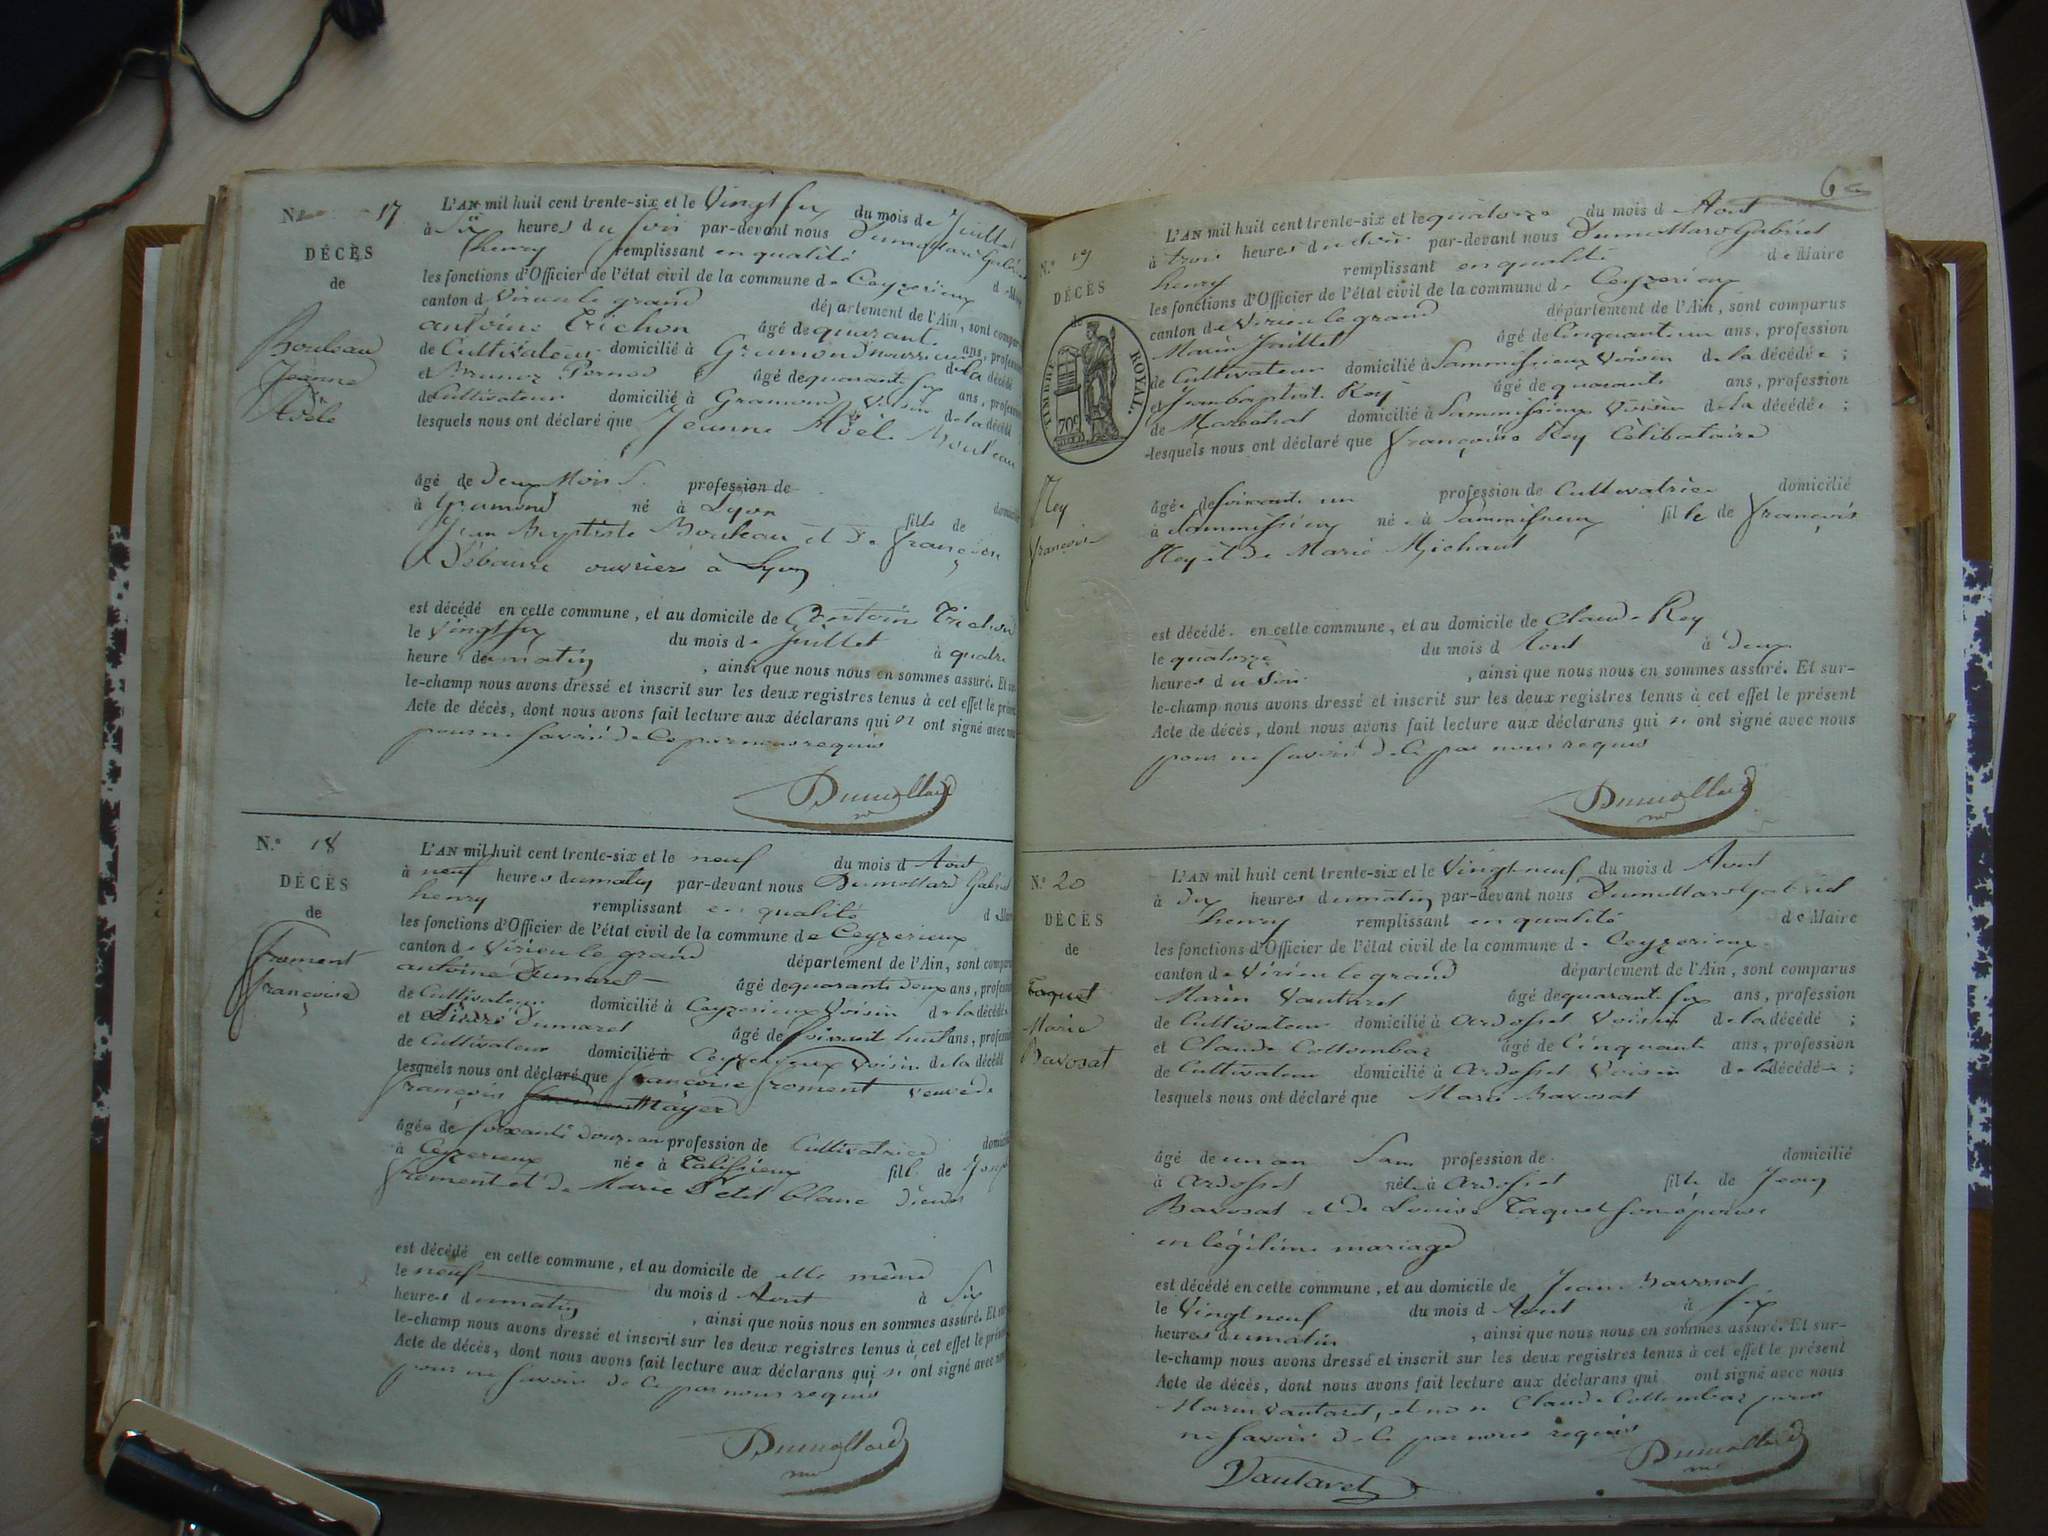 N.º 17
DÉCÈS
de
Bouleau
Jeanne
Adèle
L'AN mil huit cent trente-six et le Vingt six du mois de Juillet
à six heures du soir par-devant nous Dumollard Gabriel
henry remplissant en qualité de Maire
les fonctions d'Officier de l'état civil de la commune de Ceyzerieux
canton de Virieu le grand département de l'Ain, sont comparus
antoine Trichon âgé de quarante ans, profession
de Cultivateur domicilié à Gramond nourricier de la décédé
et Brunoz âgé de quarante six ans, profession
de Cultivateur domicilié à Gramond Voisin de la décédé
lesquels nous ont déclaré que Jeanne Adèle Bouleau
âgé de deux Mois profession de
à Gramond né à Lyon fille de
Jean Baptiste Bouleau et de françoise
ouvriers à Lyon
est décédé en cette commune, et au domicile de Antoine Trichon
le Vingt six du mois de Juillet à quatre
heure du matin , ainsi que nous nous en sommes assuré. Et sur-
le-champ nous avons dressé et inscrit sur les deux registres tenus à cet effet le présent
Acte de décès, dont nous avons fait lecture aux déclarans qui n'ont signé avec nous
pour ne savoir de ce par nous requis
Dumollard
N.º 18
DÉCÈS
de
froment
françoise
L'AN mil huit cent trente-six et le neuf du mois d Aout
à neuf heures du matin par-devant nous Dumollard Gabriel
henry remplissant en qualité de Maire
les fonctions d'Officier de l'état civil de la commune de Ceyzerieux
canton de Virieu le grand département de l'Ain, sont comparus
antoine Dumarest âgé de quarante deux ans, profession
de Cultivateur domicilié à Ceyzerieux Voisin de la décédée
et Dumarest âgé de soixante huit ans, profession
de Cultivateur domicilié à Ceyzerieux Voisin de la décédé
lesquels nous ont déclaré que françoise froment veuve de
françois Mayer
âgée de soixante douze ans profession de Cultivatrice domicilié
à Ceyzerieux née à Talissieux fille de Joseph
froment et de Marie Petit blanc
est décédé en cette commune, et au domicile de elle même
le neuf du mois d Aout à Six
heures du matin , ainsi que nous nous en sommes assuré. Et sur-
le-champ nous avons dressé et inscrit sur les deux registres tenus à cet effet le présent
Acte de décès, dont nous avons fait lecture aux déclarans qui n'ont signé avec nous
pour ne savoir de ce par nous requis
Dumollard
N.º 19
DÉCÈS
de
TIMBRE ROYAL
70c
Rey
françoise
L'AN mil huit cent trente-six et le quatorze du mois d Aout
à trois heures du soir par-devant nous Dumollard Gabriel
henry remplissant en qualité de Maire
les fonctions d'Officier de l'état civil de la commune de Ceyzerieux
canton de Virieu le grand département de l'Ain, sont comparus
Marin Juillet âgé de Cinquante un ans, profession
de Cultivateur domicilié à Sammissieux Voisin de la décédée ;
et Jean baptiste Rey âgé de quarante ans, profession
de Marechal domicilié à Sammissieux Voisin de la décédée ;
lesquels nous ont déclaré que françoise Rey Célibataire
âgée de soixante un profession de Cultivatrice domicilié
à Sammissieux née à Sammissieux fille de françois
Rey et de Marie Michaut
est décédé en cette commune, et au domicile de Claude Rey
le quatorze du mois d Aout à deux
heures du Soir , ainsi que nous nous en sommes assuré. Et sur-
le-champ nous avons dressé et inscrit sur les deux registres tenus à cet effet le présent
Acte de décès, dont nous avons fait lecture aux déclarans qui n'ont signé avec nous
pour ne savoir de ce par nous requis
Dumollard
N.º 20
DÉCÈS
de
Taquet
Marie
Bavosat
L'AN mil huit cent trente-six et le Vingt neuf du mois d Aout
à dix heures du matin par-devant nous Dumollard Gabriel
henry remplissant en qualité de Maire
les fonctions d'Officier de l'état civil de la commune de Ceyzerieux
canton de Virieu le grand département de l'Ain, sont comparus
Marin Vautaret âgé de quarante six ans, profession
de Cultivateur domicilié à Ardosset Voisin de la décédé ;
et Claude Collombaz âgé de Cinquante ans, profession
de Cultivateur domicilié à Ardosset Voisin de la décédée ;
lesquels nous ont déclaré que Marie Bavosat
âgé de un an Sans profession de domicilié
à Ardosset née à Ardosset fille de Jean
Bavosat et de Louise Taquet son épouse
en légitime mariage
est décédé en cette commune, et au domicile de Jean Bavosat
le Vingt neuf du mois d Aout à six
heures du matin , ainsi que nous nous en sommes assuré. Et sur-
le-champ nous avons dressé et inscrit sur les deux registres tenus à cet effet le présent
Acte de décès, dont nous avons fait lecture aux déclarans qui ont signé avec nous
Marin Vautaret, et non Claude Collombaz pour
ne savoir de ce par nous requis
Vautaret
Dumollard